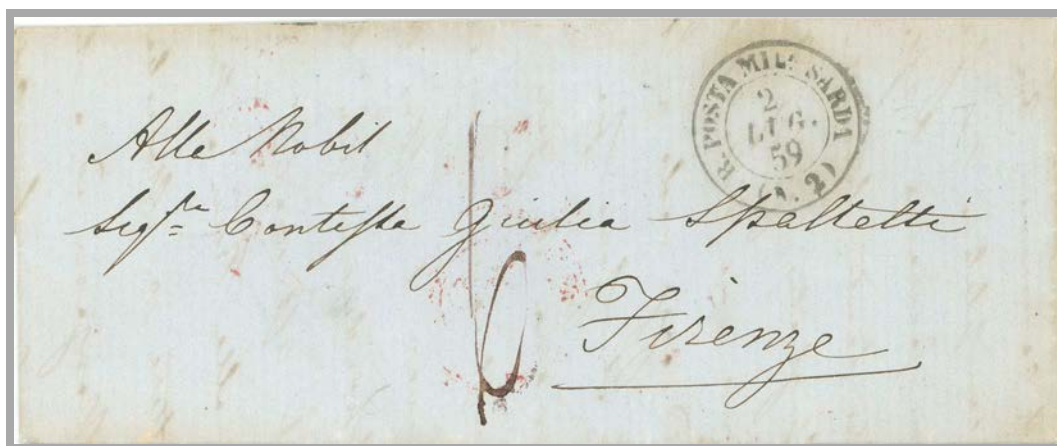 R. POSTA MILE SARDA
2
LUG.
59
(N. 2)
Alla Nobil
Sigra Contessa Giulia Spalletti
6
Firenze